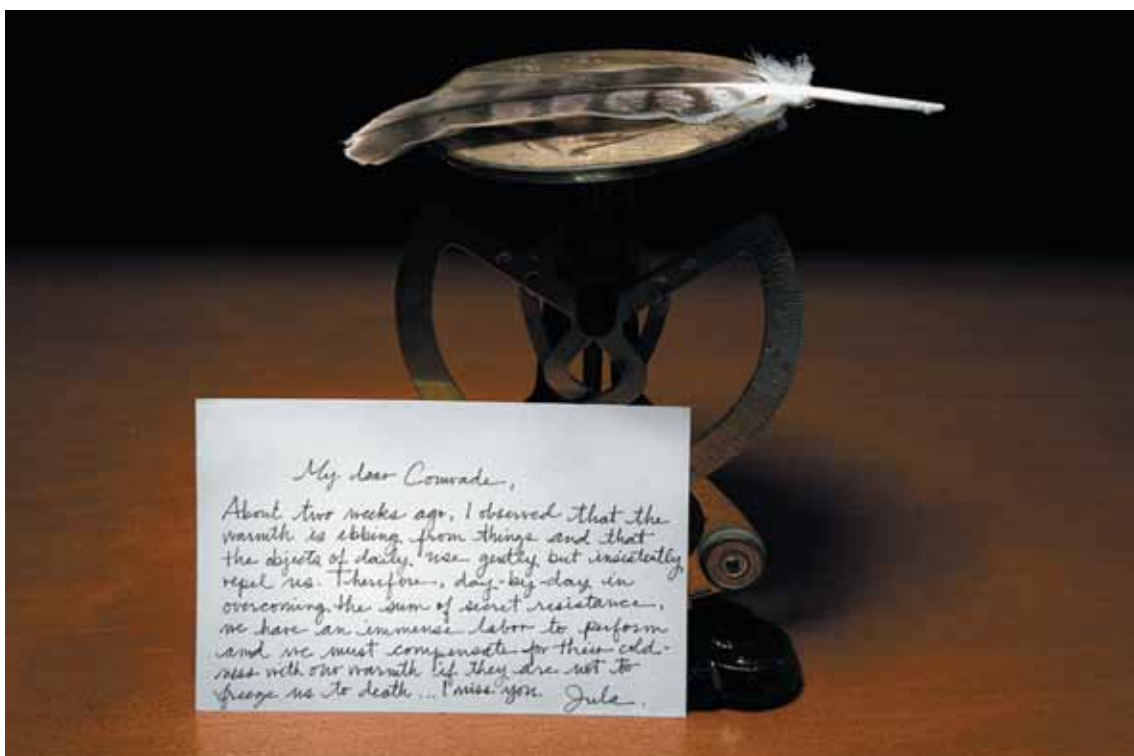 My dear Comrade,
About two weeks ago, I observed that the
warmth is ebbing from things and that
the objects of daily use gently but insistently
repel us. Therefore, day-by-day in
overcoming the sum of secret resistance,
we have an immense labor to perform
and we must compensate for their cold-
ness with our warmth if they are not to
freeze us to death ... I miss you. Jula.